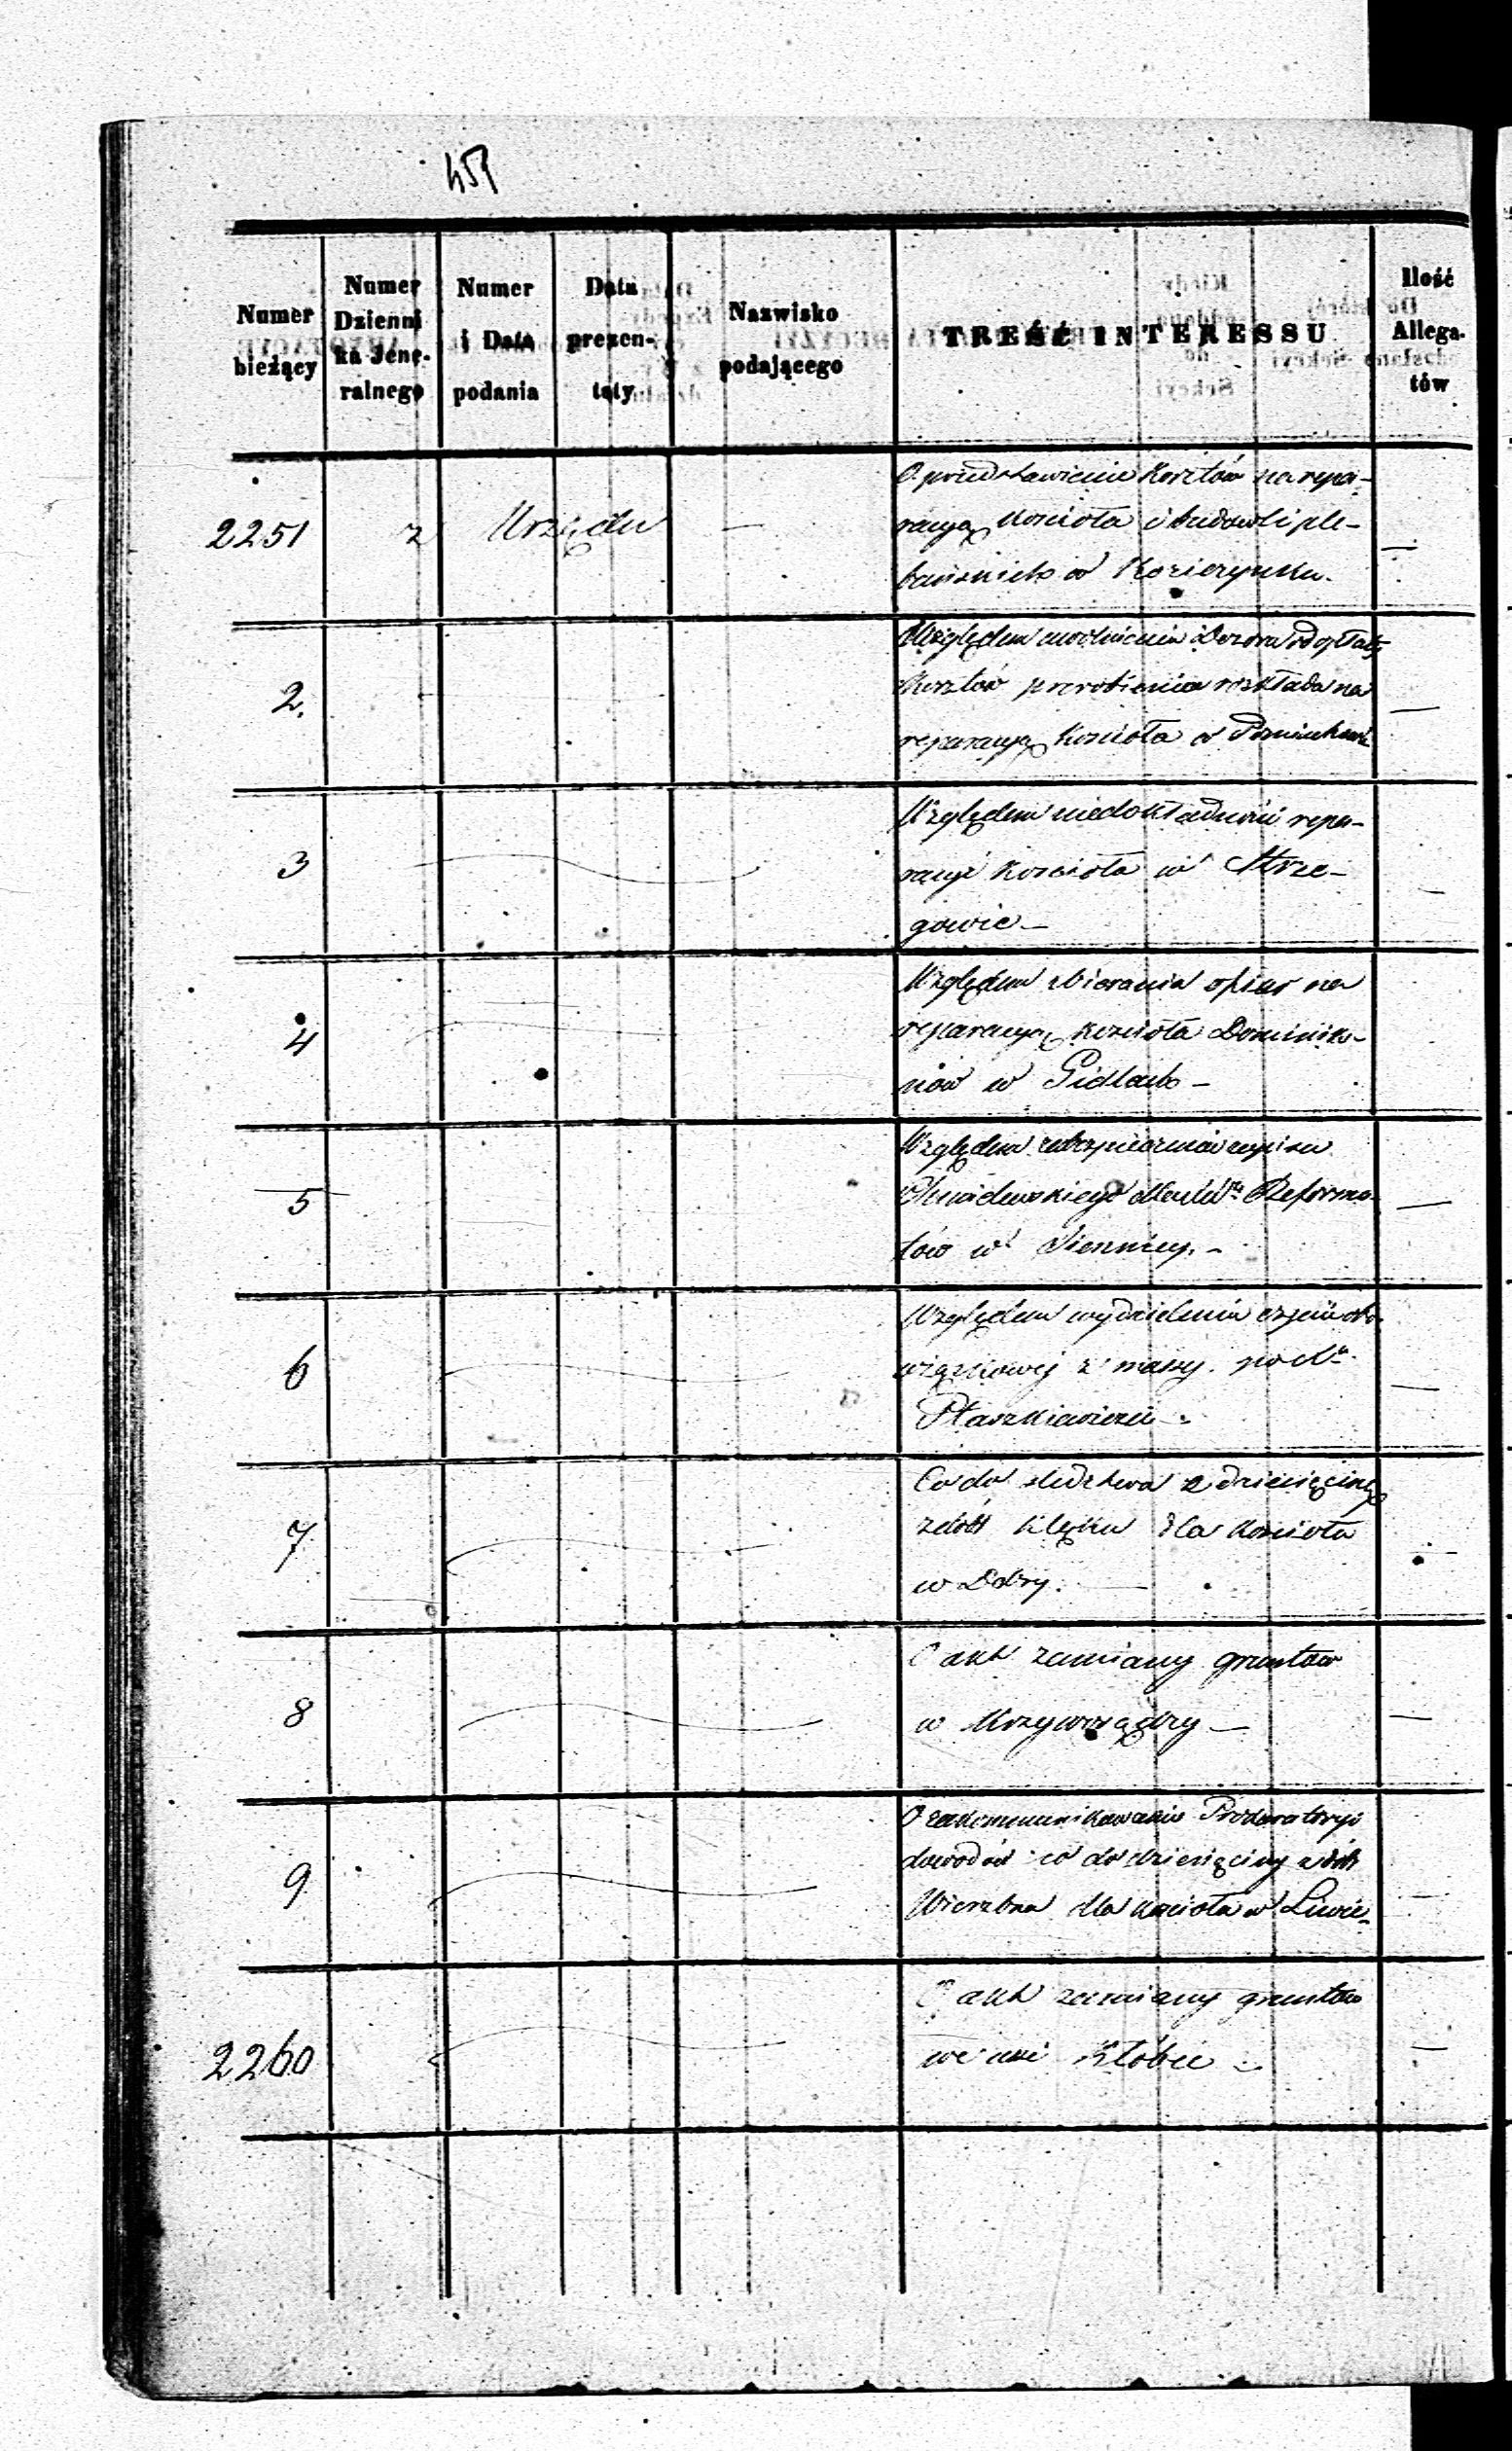 459
Numer bieżący
Numer Dzienni ka Jene- ralnego
Numer i Data podania
Data prezen- taty
Nazwisko podającego
TREŚĆ INTERESSU
Ilość Allega- tów
2251 z Urzędu —
O przedstawienie kosztów na repa-
racyą kościoła i budowli ple-
bańskich w
—
2.
Względem uwolnienia Dozoru od opłaty
kosztów przerobienia rozkładu na
reparacyą kościoła w
—
3
Względem niedokładności repa-
racyi kościoła w Strze-
gowie —
—
4
Względem zbierania ofiar na
reparacyą kościoła Dominika-
nów w Gidlach —
5
Względem zabezpieczenia zapisu
Reforma-
tów w Siennicy. —
—
6
Względem wydzielenia części obo-
wiązkowej z massy po
Ptaszkiewiczu —
—
7
Co do śledztwa z dziesięciny
z dóbr Klęka dla kościoła
w Dobry. —
—
8
O akt zamiany gruntów
w Krzyworządzy —
—
9
O zakommunikowanie Prokuratoryi
dowodów co do dziesięciny z dóbr
Wierzbna dla kościoła w Liwie —
—
2260
O akt zamiany gruntów
we wsi Kłobie —
—